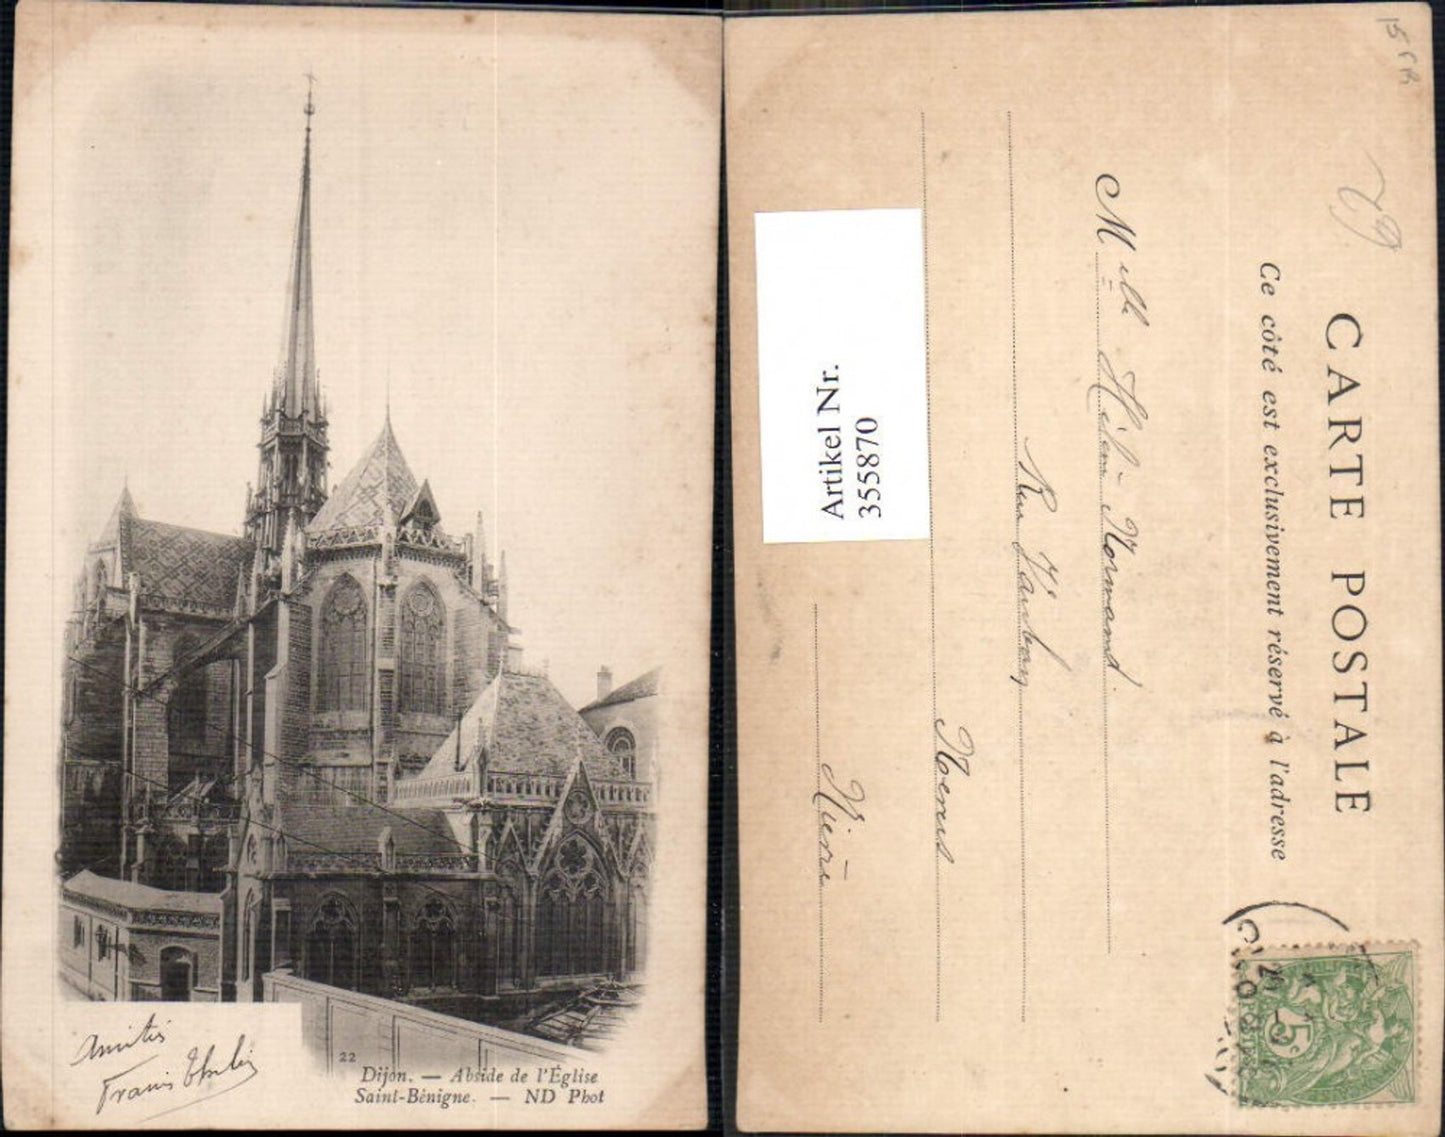 Amitiés
Francis
22
Dijon. — Abside de l'Église
Saint-Bénigne. — ND Phot
CARTE POSTALE
Ce côté est exclusivement réservé à l'adresse
Melle Hélène Normand
Rue Vauban
Nevers
Nièvre
Artikel Nr.
355870
5c